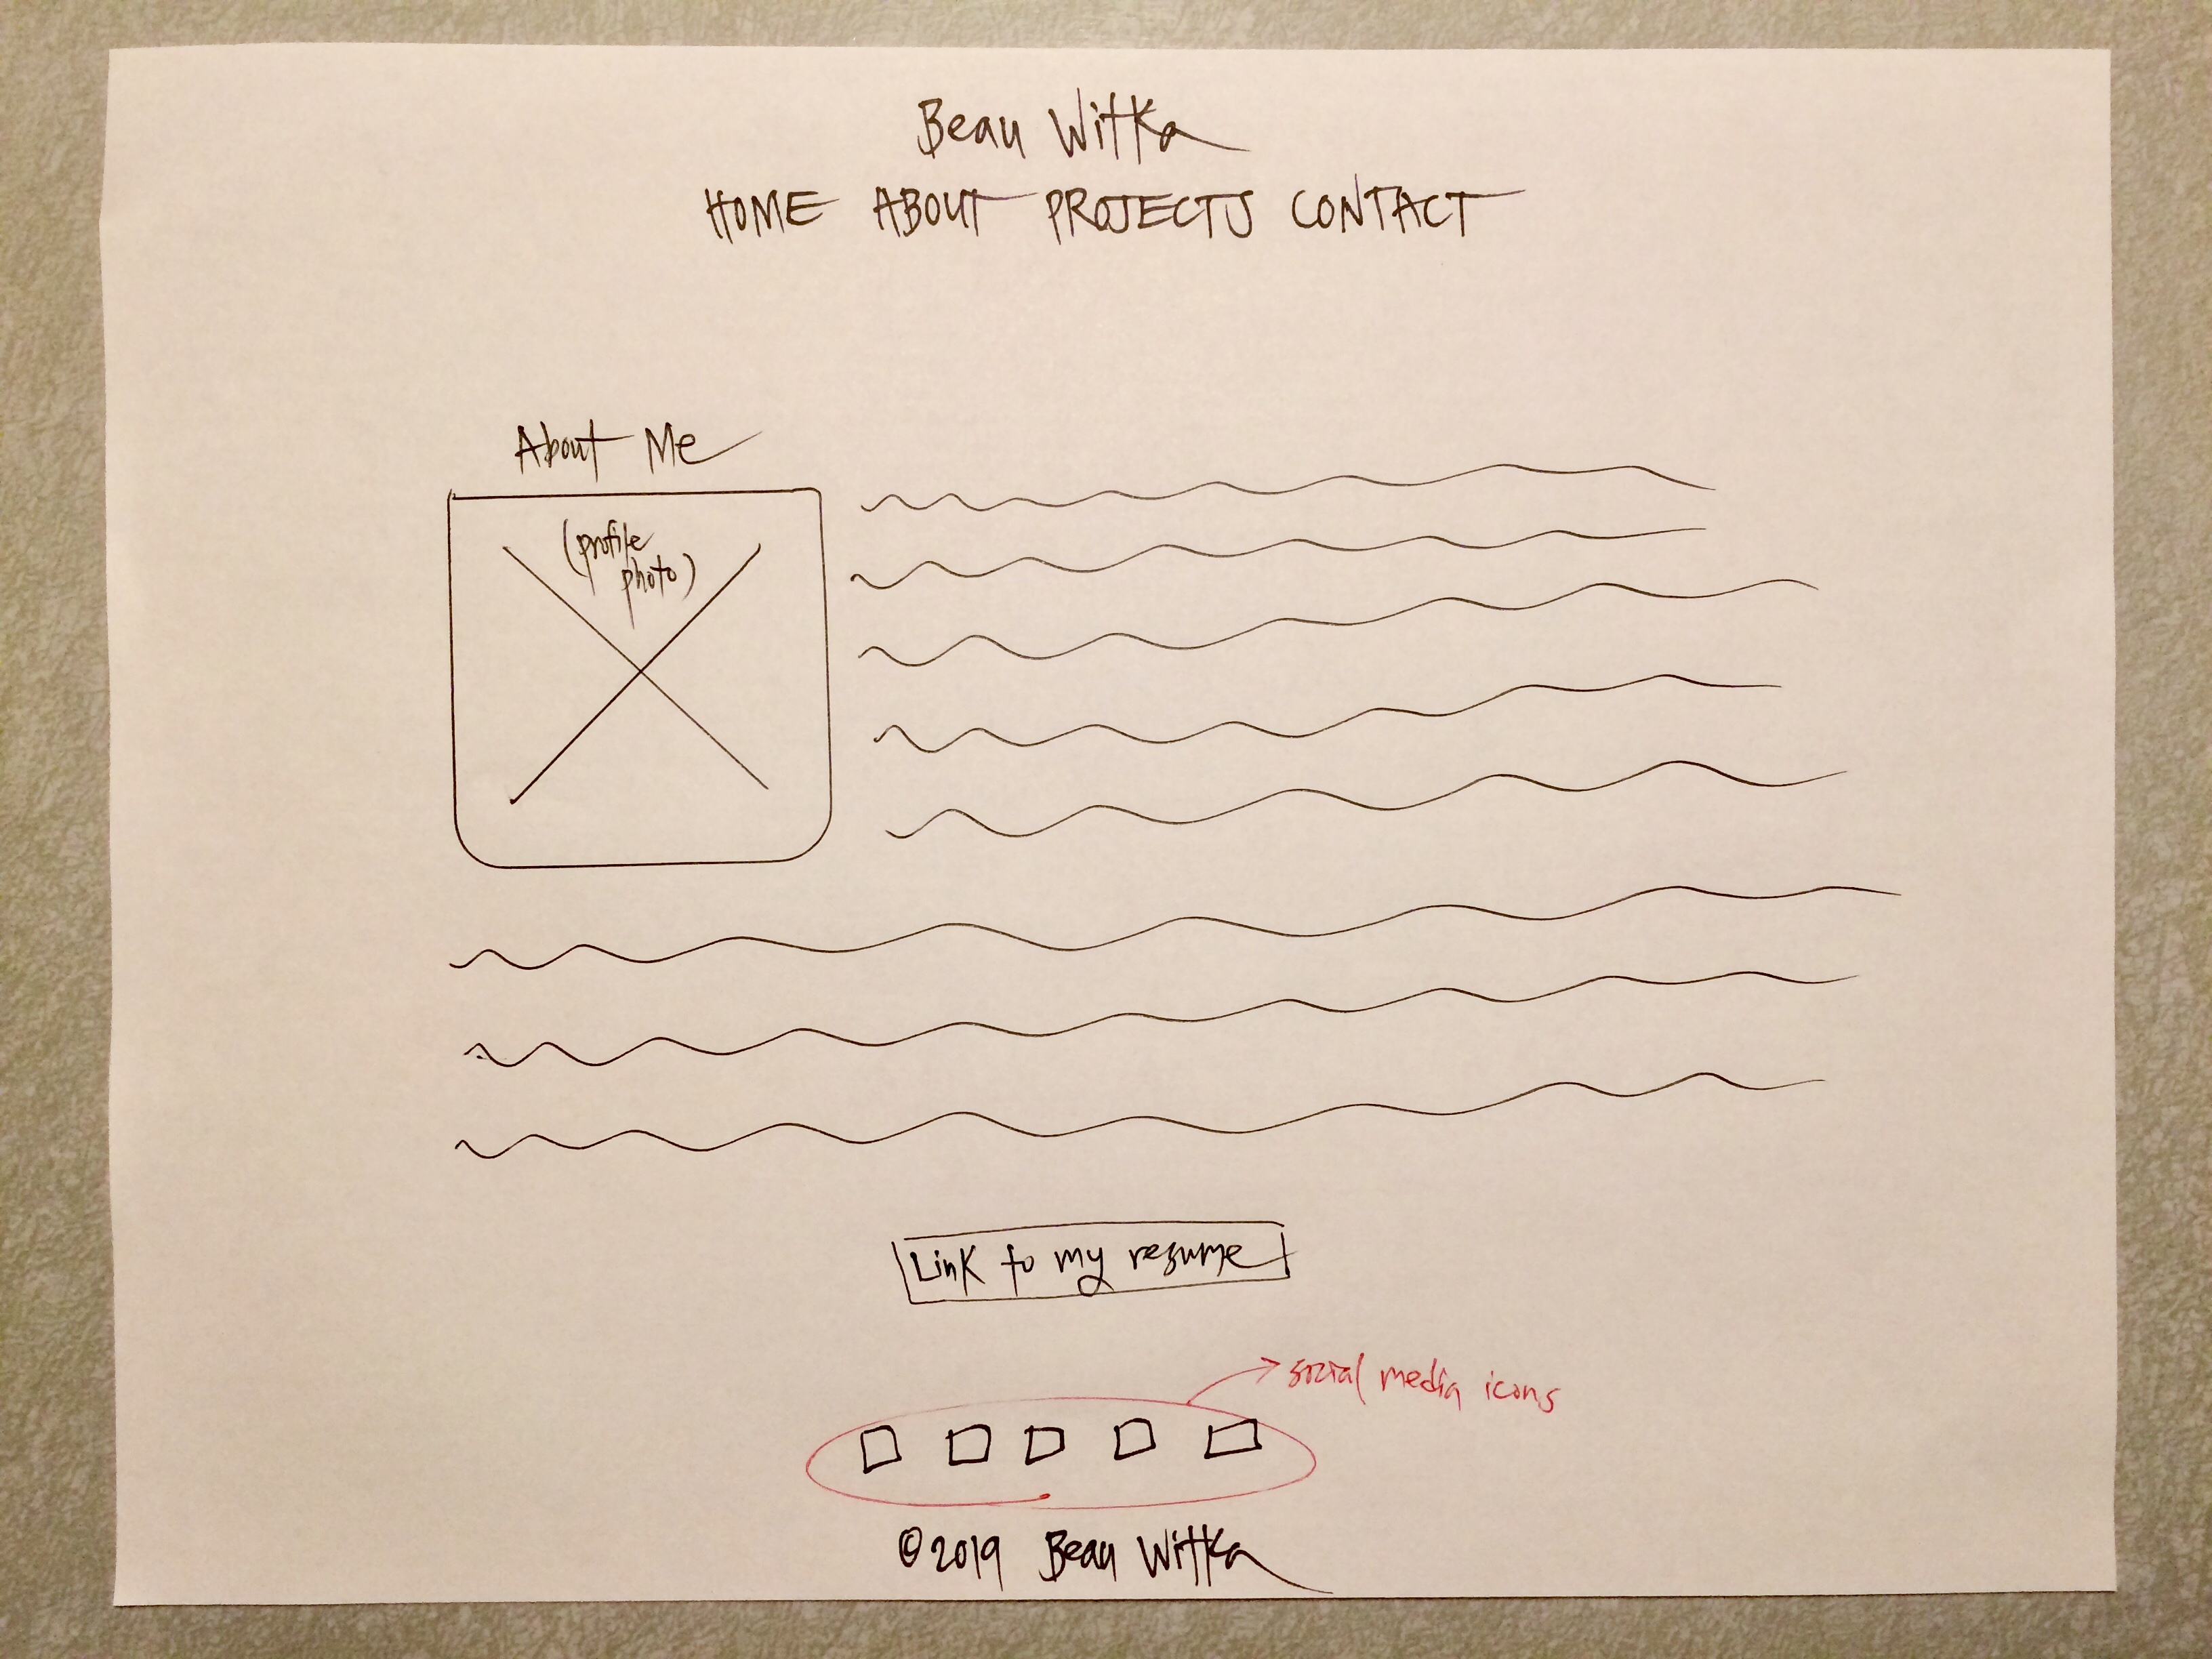 Beau Wittka
HOME ABOUT PROJECTS CONTACT
About Me
(profile
photo)
Link to my resume
social media icons
©2019 Beau Wittka